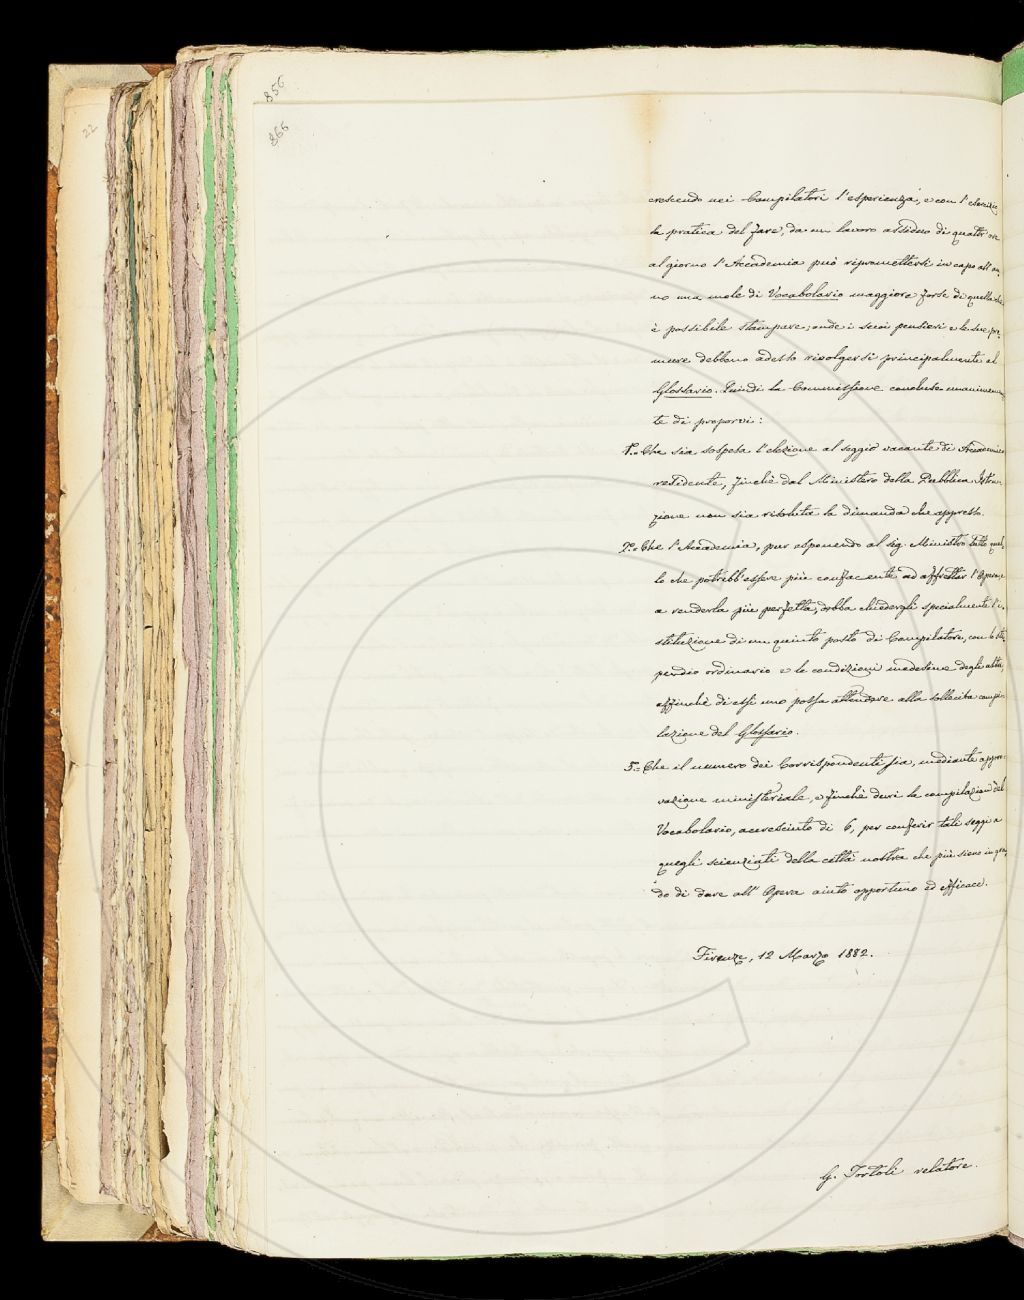 856
866
22
crescendo nei Compilatori l'esperienza, e con l'esercizio
la pratica del fare, da un lavoro assiduo di quattr'ore
al giorno l'Accademia può ripromettersi in capo all'an-
no una mole di Vocabolario maggiore forse di quella che
è possibile stampare; onde i suoi pensieri e le sue pre-
mure debbono adesso rivolgersi principalmente al
Glossario. Quindi la Commissione concluse unanimemen-
te di proporvi:
1.º Che sia sospesa l'elezione al seggio vacante di Accademico
residente, finchè dal Ministero della Pubblica Istru-
zione non sia risoluta la dimanda che appresso.
2.º Che l'Accademia, pur esponendo al sig. Ministro tutto quel-
lo che potrebb'essere più confacente ad affrettar l'Opera e
a renderla più perfetta, debba chiedergli specialmente l'i-
stituzione di un quinto posto di Compilatore, con lo sti-
pendio ordinario e le condizioni medesime degli altri,
affinchè di essi uno possa attendere alla sollecita compi-
lazione del Glossario.
3.º Che il numero dei Corrispondenti sia, mediante appro-
vazione ministeriale, e finchè duri la compilazion del
Vocabolario, accresciuto di 6, per conferir tali seggi a
quegli scienziati della città nostra che più sieno in gra-
do di dare all'Opera aiuto opportuno ed efficace.
Firenze, 12 Marzo 1882.
G. Tortoli relatore.